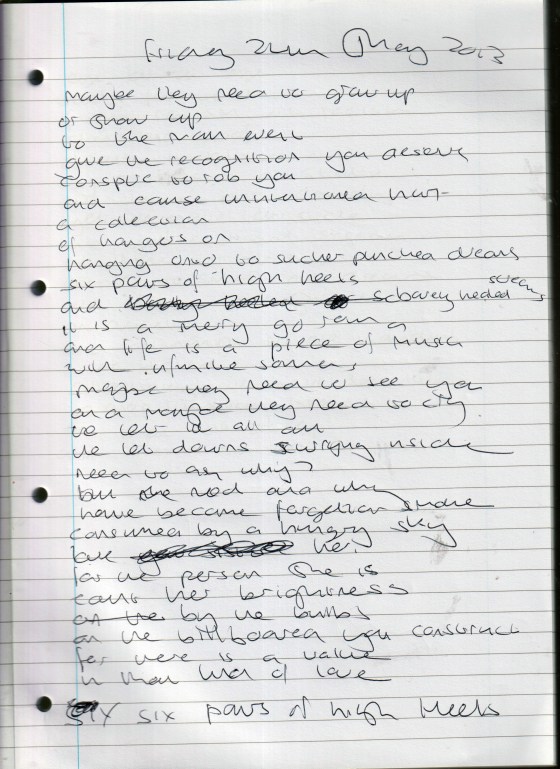 Friday May 2013
maybe they need to grow up
or show up
to the main event
give the recognition you deserve
conspire to rob you
and cause hurt
a collection
of hangers on
hanging onto to sucker punched dreams
six pairs of high heels
and sobarey heeled screams
it is a merry go round
and life is a piece of music
with infinite
maybe they need to see you
and maybe they need to cry
to let it all out
the let downs inside
need to ask why?
but the and why
have become forgotten
consumed by a hungry sky
love her
for the person she is
count her brightness
by the bulbs
on the billboard you construct
for there is a value
in that of love
six pairs of high heels